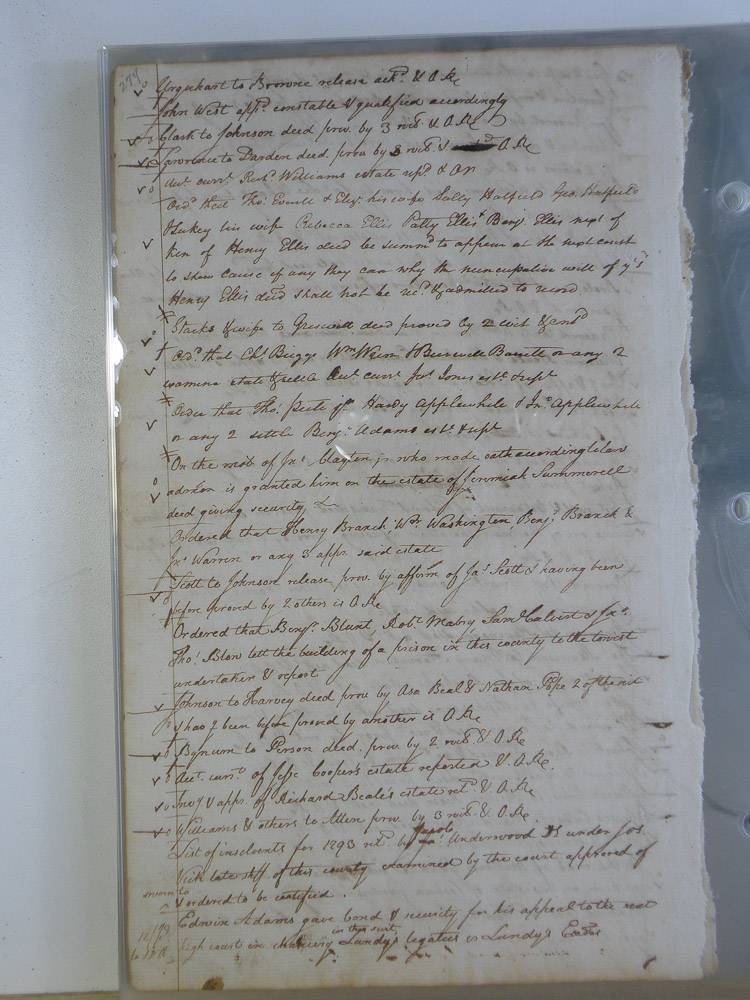 Urquhart to Browne release ackd. & O Re
John West appd. constable & qualified accordingly
Clark to Johnson deed prov. by 3 wits. & O Re
Lawrence to Darden deed prov by 3 wits & O Re
Act. curt. Williams estate
Ord. that Thos. Everett & Eliz. his wife Sally Hatfield Geo. Hatfield
his wife Rebecca Ellis Patty Ellis & Benj. Ellis next of
kin of Henry Ellis decd be summd. to appear at the next court
to show cause if any they can why the nuncupative will of
Henry Ellis decd shall not be recd. & admitted to record
Stacks & wife to deed proved by 2 wits
Ord. that Chs. Briggs Wm & Burwell Barrett or any 2
examine state & settle Act. curt. Jones est. & rept
Order that Thos. Peete Hardy Applewhite & Jno. Applewhite
or any 2 settle Benj. Adams est. & rept
On the mot. of Jno. Clayton jr. who made oath according to law
admon is granted him on the estate of Jeremiah Summerell
decd giving security &
Ordered that Henry Branch Wm. Washington, Benj. Branch &
Jno. Warren or any 3 appr. said estate
Scott to Johnson release prov. by affirm. of Jas. Scott & having been
before proved by 2 others is O Re
Ordered that Benj. Blunt, Robt. Mabry Saml. Calvert & Jno.
Thos. Blow lett the building of a prison in this county to the lowest
undertaker & report
Johnson to Harvey deed prov. by Asa Beal & Nathan Pope 2 of the wit
& having been before proved by another is O Re
Bynum to Person deed. prov. by 2 wits. & O Re
Act. curt. of Jesse Cooper's estate reported & O Re.
Invy & appr. of Richard Beale's estate retd. & O Re
Williams & others to Allen prov. by 3 wits. & O Re.
List of insolvents for 1793 retd. by Jacob Underwood under Jos.
Vick late shff of this county examined by the court approved of
& ordered to be certified.
sworn to
Edwin Adams gave bond & security for his appeal to the next
in this suit
high court in chancery Lundy's legatees vs Lundy's Exors